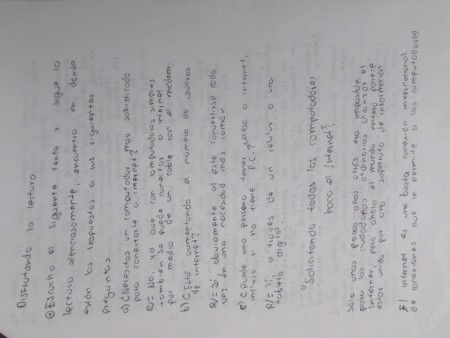 Disfrutando la lectura.
① Escribo el siguiente texto y sigue la
lectura silenciosamente, encuentra en donde
están las respuestas a las siguientes
preguntas
a) ¿Necesitas un computador muy sofisticado
para conectarte a internet?
R/= No, ya que con computadores simples
tambien se puede conectarse a internet
por medio de un cable con el modem.
b) ¿Está aumentando el número de usuarios
de internet?
R/= Sí, obviamente al este convertirse cada
vez en una necesidad más común.
c) ¿Puede una persona tener acceso a internet,
incluso si no tiene P.C.?
R/= Sí, a traves de un celular o una
tableta digital
"Solicitando todas las computadoras
hacia el Internet"
Solo unos pocos años atrás era imposible
para los ciudadanos ordinarios usar el
Internet, pero ahora el mundo entero parece
estar unido por una supercarretera de información
El internet es una basta conexión internacional
de conexiones que le permite a las computadoras